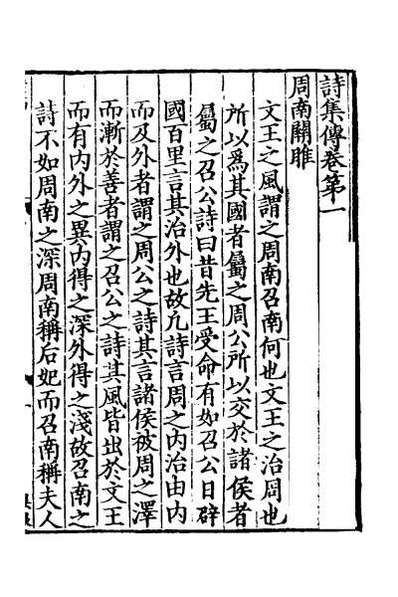 詩集傳卷第一
周南關雎
文王之風謂之周南召南何也文王之治周也
所以爲其國者屬之周公所以交於諸侯者
屬之召公詩曰昔先王受命有如召公日辟
國百里言其治外也故凢詩言周之內治由內
而及外者謂之周公之詩其言諸侯被周之澤
而漸於善者謂之召公之詩其風皆出於文王
而有內外之異內得之深外得之淺故召南之
詩不如周南之深周南稱后妃而召南稱夫人